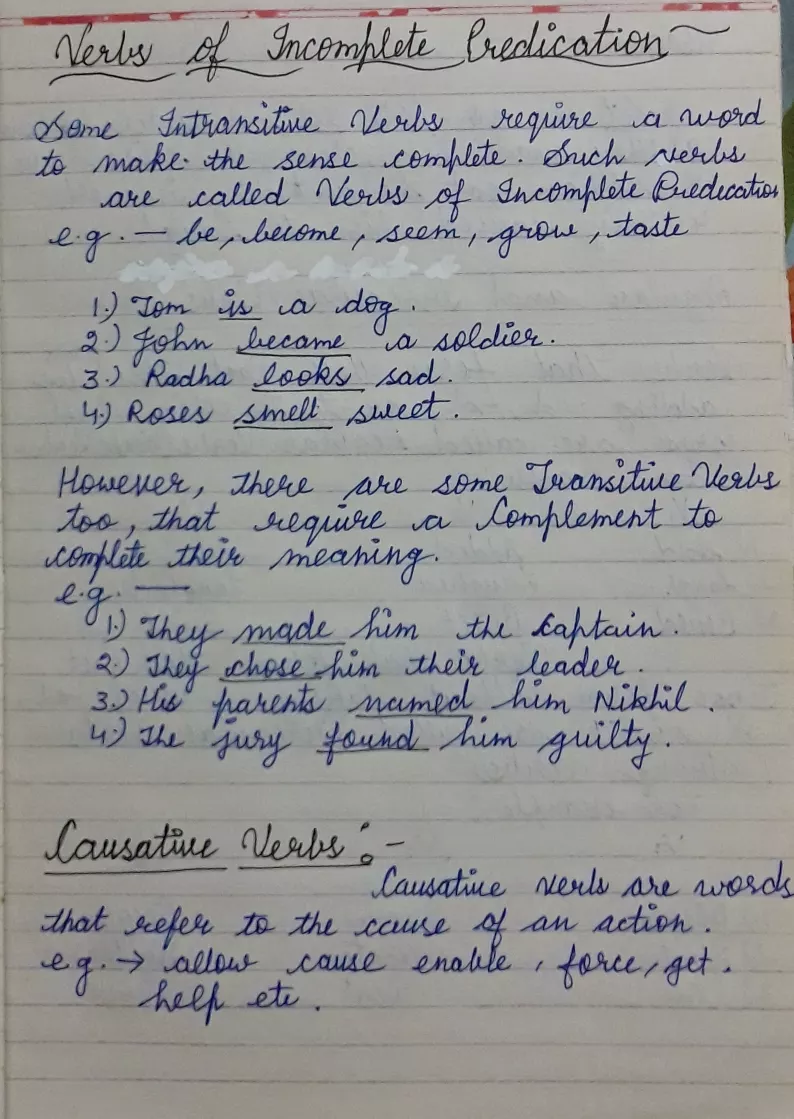 Verbs of Incomplete Predication
Some Intransitive Verbs require a word
to make the sense complete. Such verbs
are called Verbs of Incomplete Predication
e.g. — be, become, seem, grow, taste
1.) Tom is a dog.
2.) John became a soldier.
3.) Radha looks sad.
4.) Roses smell sweet.
However, there are some Transitive Verbs
too, that require a Complement to
complete their meaning.
e.g. —
1.) They made him the Captain.
2.) They chose him their leader.
3.) His parents named him Nikhil.
4.) The jury found him guilty.
Causative Verbs :-
Causative verbs are words
that refer to the cause of an action.
e.g. → allow cause enable, force, get.
help etc.